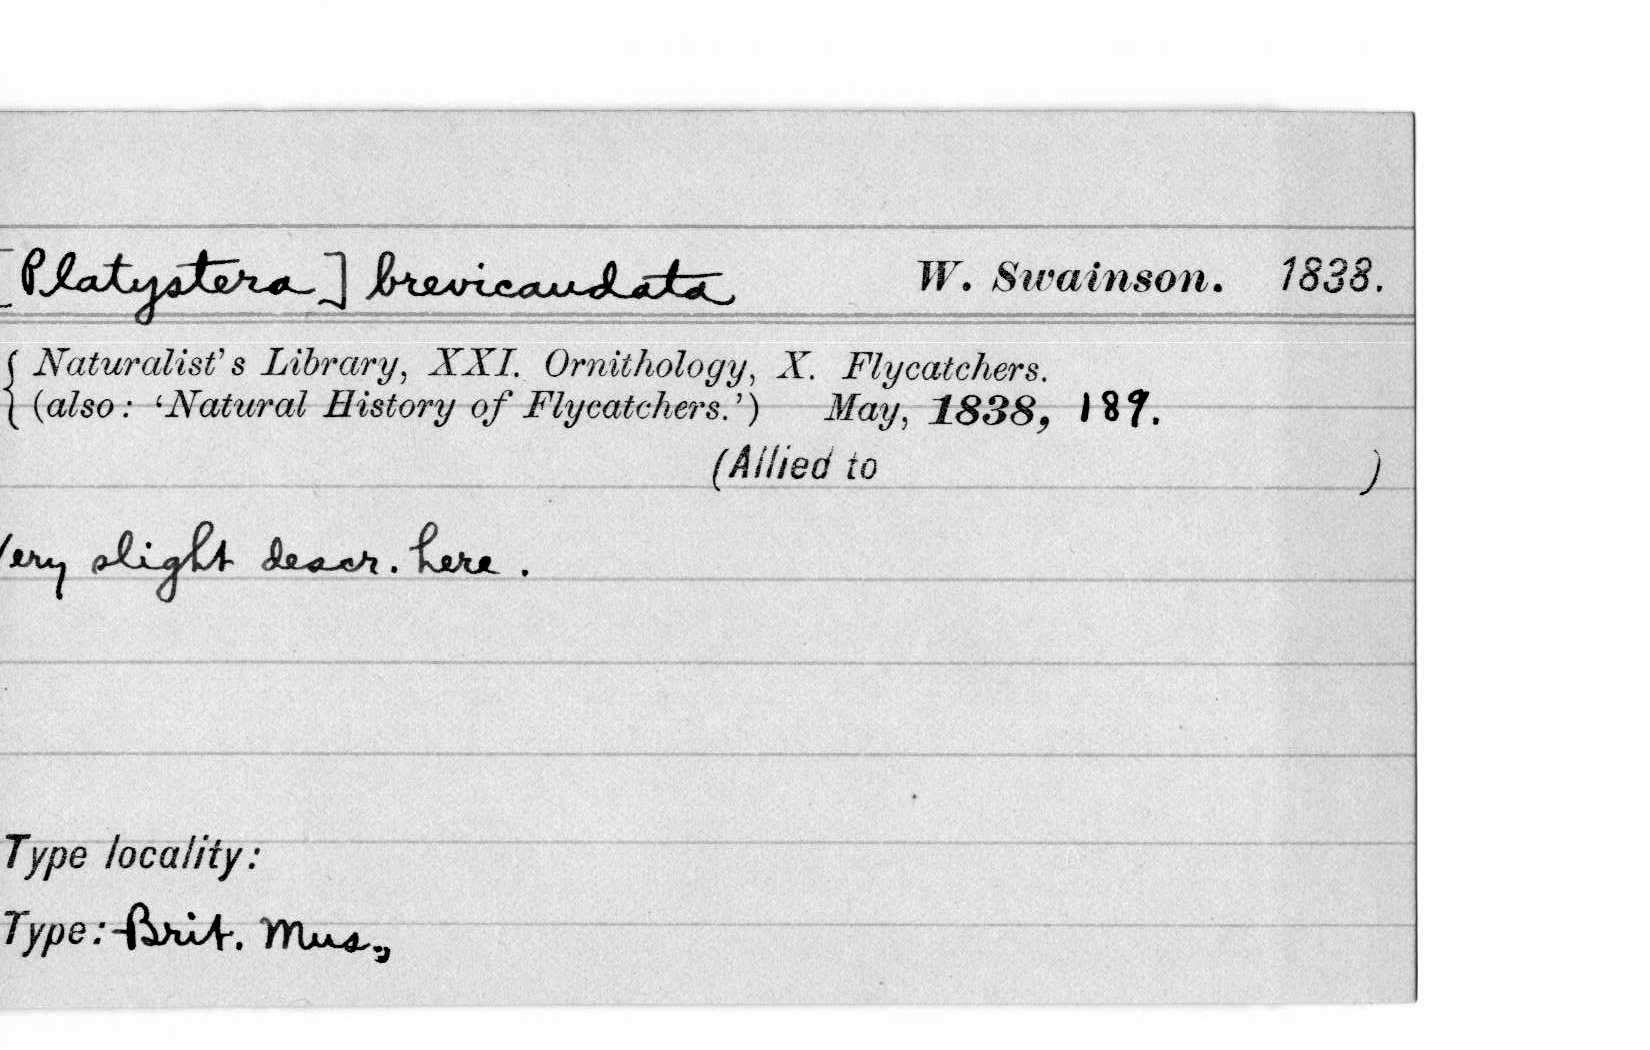 [Platystera] brevicaudata W. Swainson. 1838.
{ Naturalist's Library, XXI. Ornithology, X. Flycatchers.
(also: 'Natural History of Flycatchers.') May, 1838, 189.
(Allied to )
Very slight descr. here.
Type locality:
Type: Brit. Mus.,